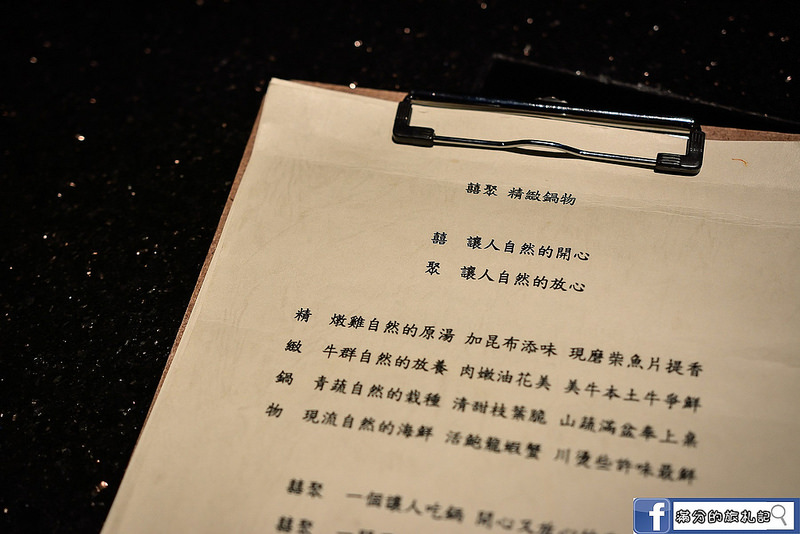 囍聚 精緻鍋物
囍 讓人自然的開心
聚 讓人自然的放心
精 燉雞自然的原湯 加昆布添味 現磨柴魚片提香
緻 牛群自然的放養 肉嫩油花美 美牛本土牛爭鮮
鍋 青蔬自然的栽種 清甜枝葉脆 山蔬滿盆奉上桌
物 現流自然的海鮮 活鮑龍蝦蟹 川燙些許味最鮮
囍聚 一個讓人吃鍋 開心又放心
囍聚 一
滿分的旅札記